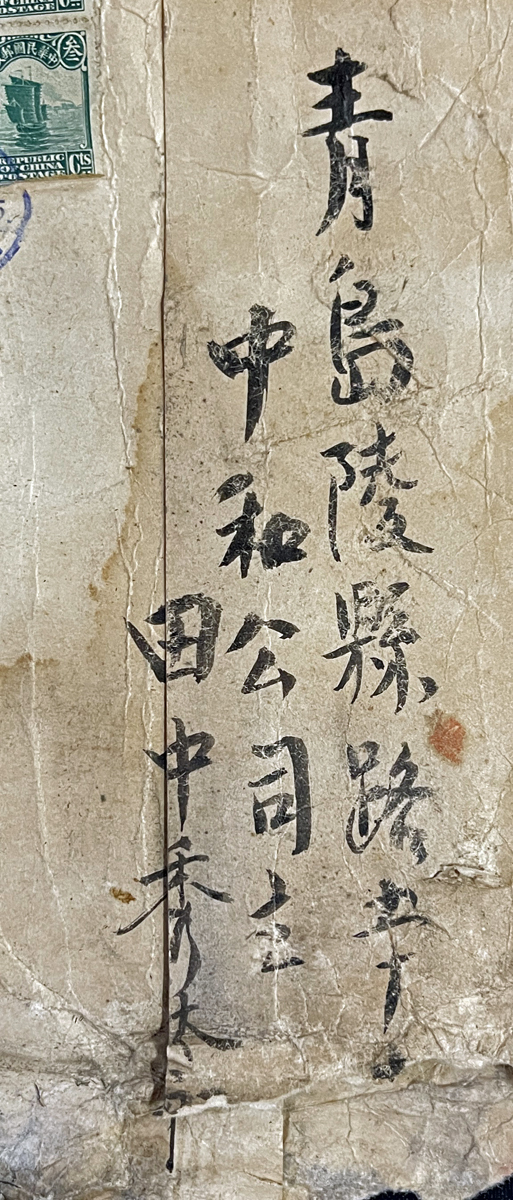 青島陵縣路
中和公司主
田中秀
中華民國郵
叁
REPUBLIC
OF CHINA
POSTAGE
Cts
POSTAGE